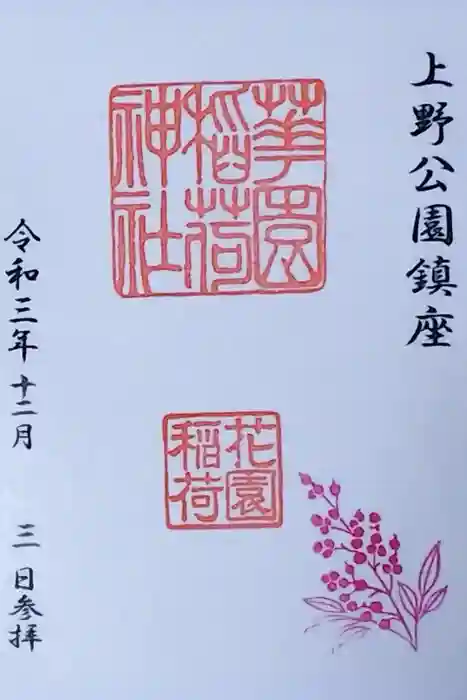 上野公園鎮座
華園
稲荷
神社
花園
稲荷
令和三年十二月三日参拝